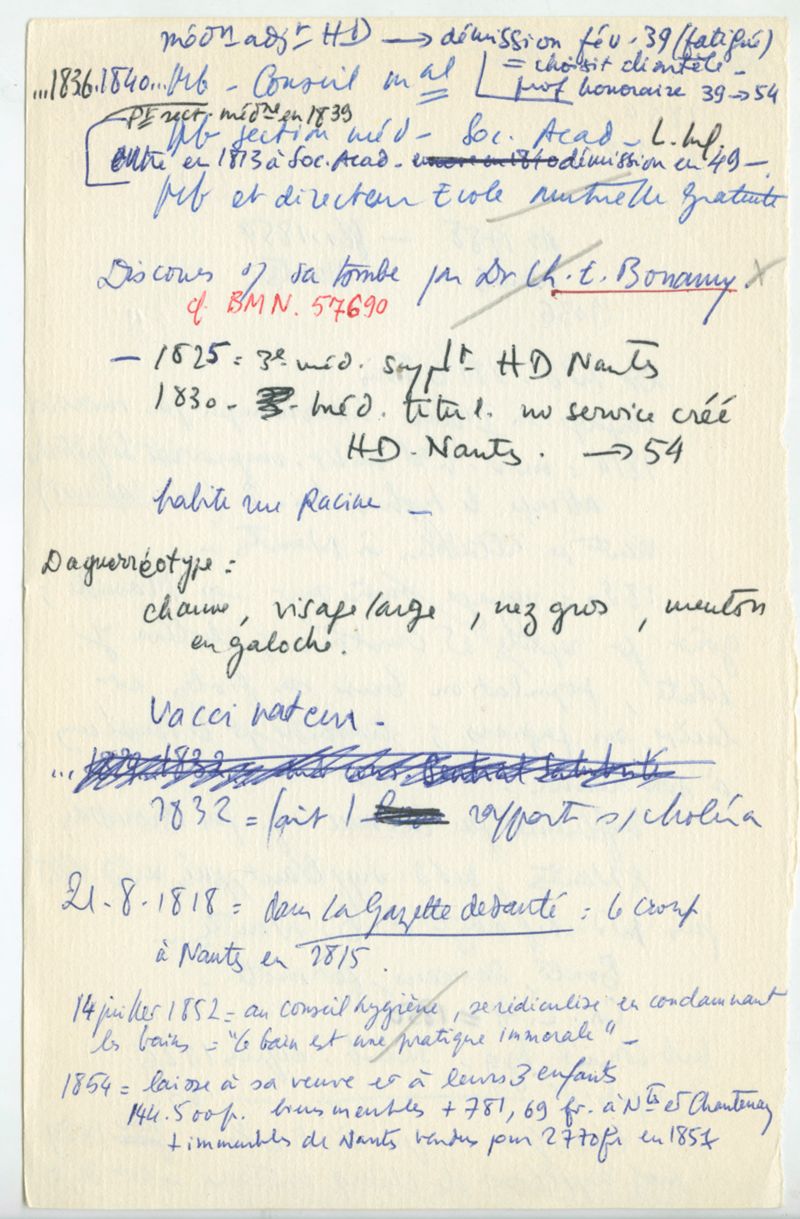 médn adjt HD → démission fév. 39 (fatigué)
= choisit clientèle -
...1836.1840... Mb - Conseil mal
prof honoraire 39 → 54
Pt sect. médne en 1839
Mb section méd - Soc. Acad - L. Inf.
entre en 1813 à Soc. Acad - démission en 49 -
Mb et directeur Ecole mutuelle Gratuite
Discours s/ sa tombe par Dr Ch. E. Bonamy. x
cf BMN. 57690
- 1825 = 3e méd. supplt HD Nantes
1830 - méd. titul. no service créé
HD. Nantes. → 54
habite rue Racine -
Daguerréotype :
chauve, visage large, nez gros, menton
en galoche.
Vaccinateur -
... 1832
1832 = fait 1 rapport s/choléra
21.8.1818 = dans la Gazette de santé : le croup
à Nantes en 1815.
14 juillet 1852 = au conseil hygiène, se ridiculise en condamnant
les bains = "le bain est une pratique immorale" -
1854 = laisse à sa veuve et à leurs 3 enfants
144.500f. biens meubles + 781,69 fr. à Ntes et Chantenay
+ immeubles de Nantes vendus pour 2770fr en 1851